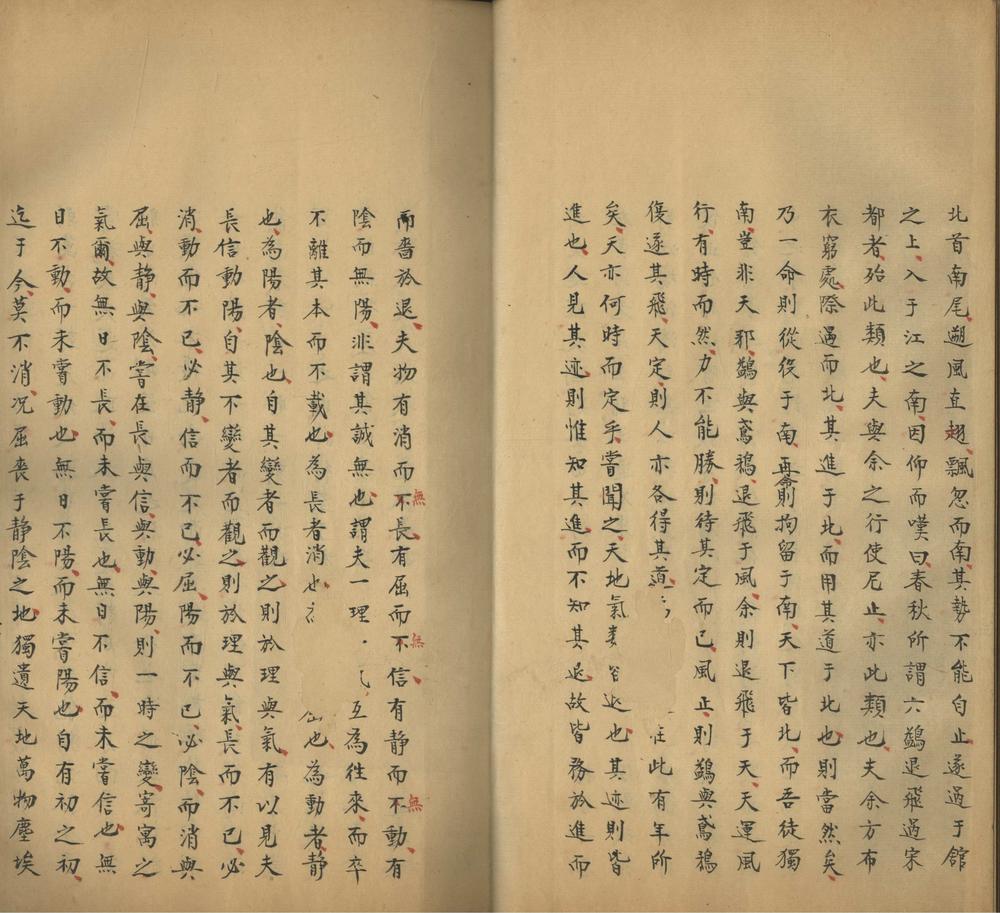 北首南尾遡風直趐飄忽而南其勢不能自止遂過于舘
之上入于江之南因仰而嘆曰春秋所謂六鷁退飛過宋
都者殆此類也夫與余之行使尼止亦此類也夫余方布
衣窮處際遇而北其進于北而用其道于北也則當然矣
乃一命則從役于南再命則拘留于南天下皆北而吾徒獨
南豈非天邪鷁與鳶鴉退飛于風余則退飛于天天運風
行有時而然力不能勝則待其定而已風止則鷁與鳶鴉
復遂其飛天定則人亦各得其道 在此有年所
矣天亦何時而定乎嘗聞之天地氣 也其迹則皆
進也人見其迹則惟知其進而不知其退故皆務於進而
而嗇於退夫物有消而不無長有屈而不無信有静而不無動有
陰而無陽非謂其誠無也謂夫一理 互為徃來而卒
不離其本而不載也為長者消也 也為動者静
也為陽者陰也自其變者而觀之則於理與氣有以見夫
長信動陽自其不變者而觀之則於理與氣長而不已必
消動而不已必静信而不已必屈陽而不已必陰而消與
屈與静與陰嘗在長與信與動與陽則一時之變寄寓之
氣爾故無日不長而未嘗長也無日不信而未嘗信也無
日不動而未嘗動也無日不陽而未嘗陽也自有初之初
迄于今莫不消况屈喪于静陰之地獨遺天地萬物塵埃